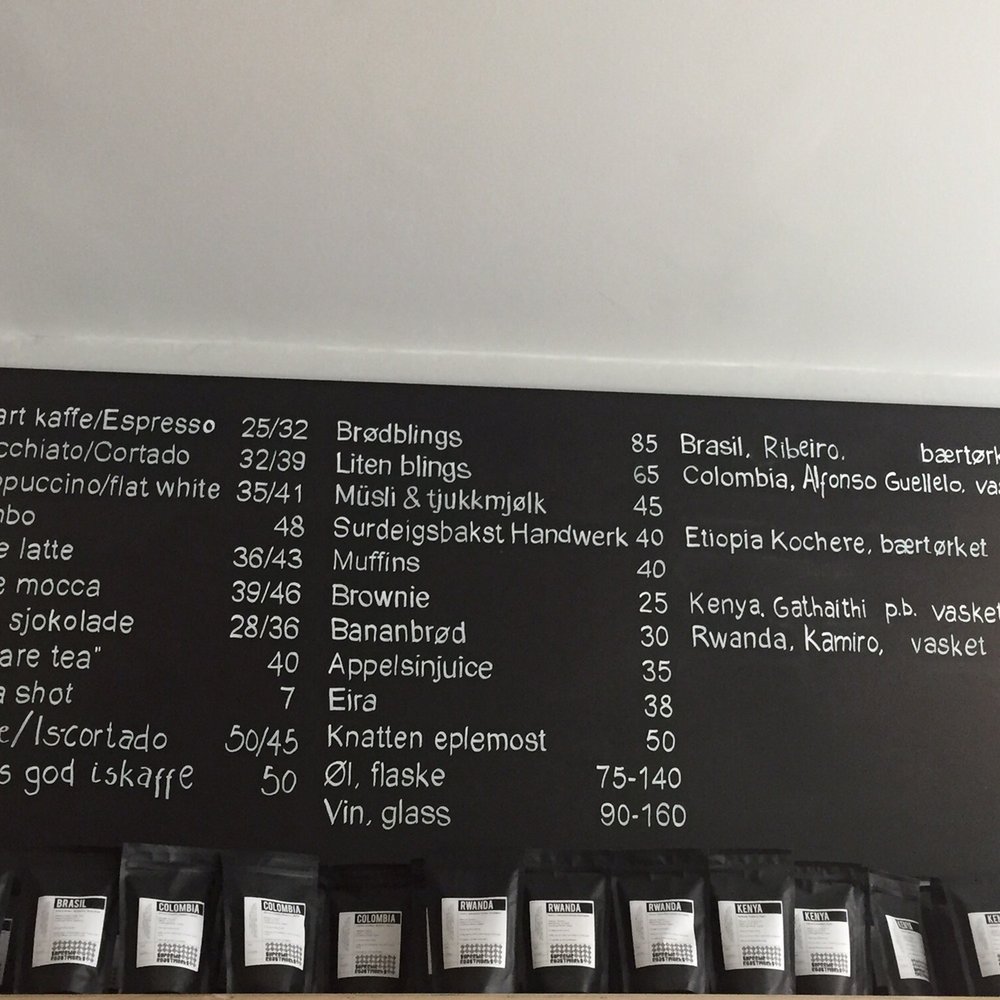 art kaffe/Espresso 25/32
cchiato/Cortado 32/39
ppuccino/flat white 35/41
mbo 48
e latte 36/43
e mocca 39/46
sjokolade 28/36
are tea" 40
a shot 7
e/Is-cortado 50/45
s god iskaffe 50
Brødblings 85
Liten blings 65
Müsli & tjukkmjølk 45
Surdeigsbakst Handwerk 40
Muffins 40
Brownie 25
Bananbrød 30
Appelsinjuice 35
Eira 38
Knatten eplemost 50
Øl, flaske 75-140
Vin, glass 90-160
Brasil, Ribeiro, bærtørk
Colombia, Alfonso Guellelo, va
Etiopia Kochere, bærtørket
Kenya, Gathaithi p.b. vasket
Rwanda, Kamiro, vasket
BRASIL
SUPREME ROASTWORKS
COLOMBIA
SUPREME ROASTWORKS
COLOMBIA
SUPREME ROASTWORKS
COLOMBIA
SUPREME ROASTWORKS
RWANDA
SUPREME ROASTWORKS
RWANDA
SUPREME ROASTWORKS
RWANDA
SUPREME ROASTWORKS
KENYA
SUPREME ROASTWORKS
KENYA
SUPREME ROASTWORKS
KENYA
KE